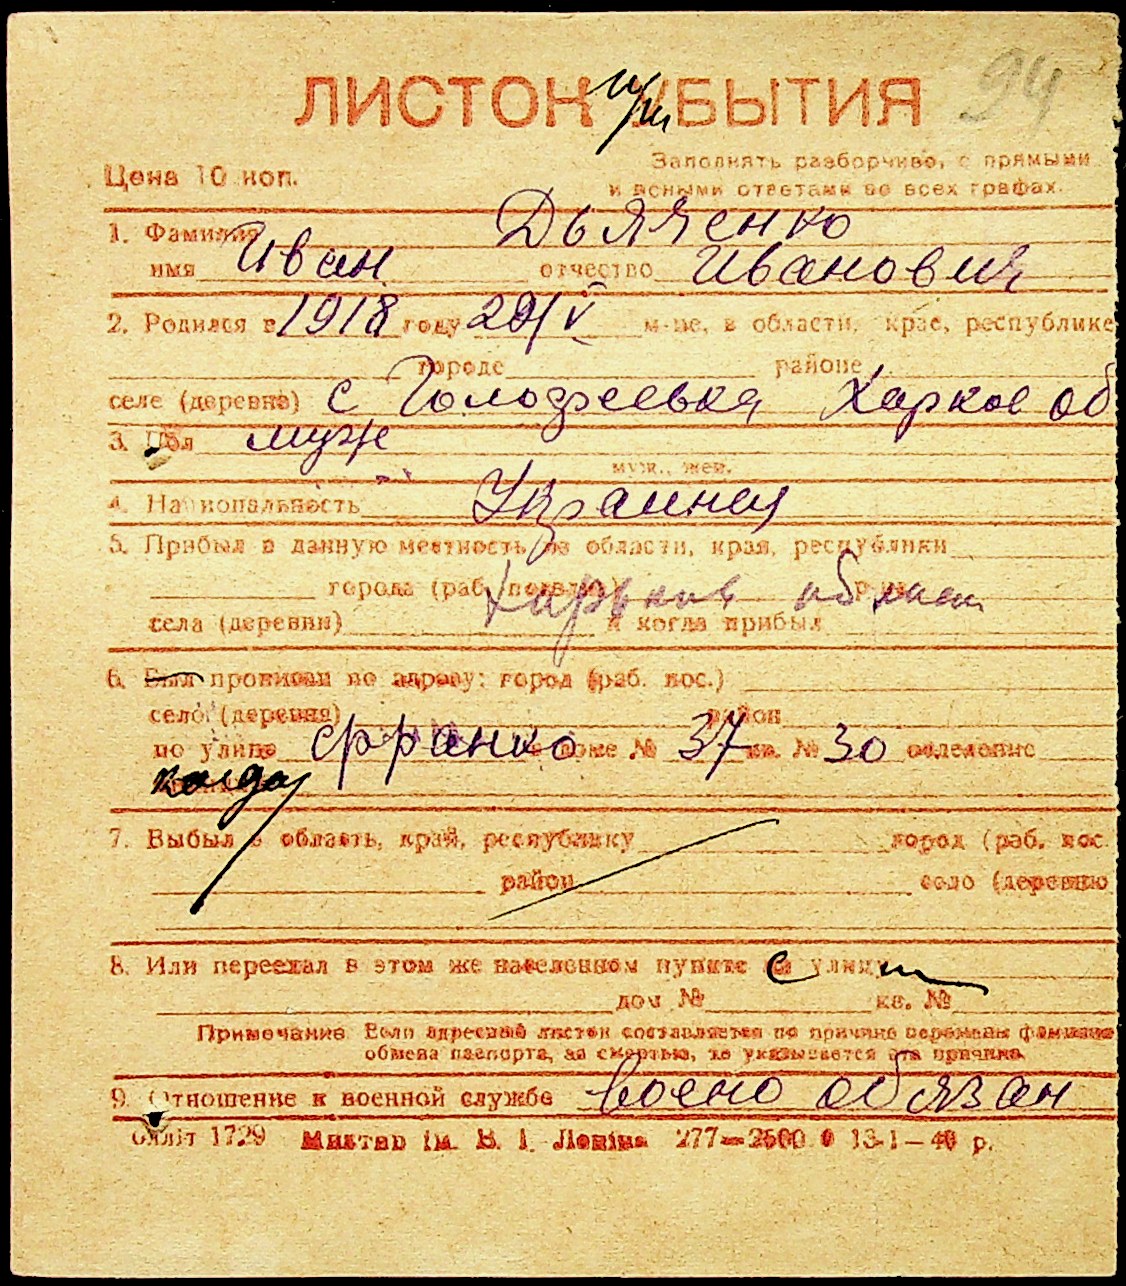 ЛИСТОК УБЫТИЯ 94
Цена 10 коп.
Заполнять разборчиво, с прямыми
и ясными ответами во всех графах.
1. Фамилия Дьяченко
имя Иван отчество Иванович
2. Родился в 1918 году 29/V м-це, в области, крае, республике
городе районе
селе (деревне) с Харков об
3. Пол муж
муж., жен.
4. Национальность Украинец
5. Прибыл в данную местность из области, края, республики
города (раб. поселка) Харьков област р-на
села (деревни) и когда прибыл
6. Был прописан по адресу: город (раб. пос.)
село (деревня) район
по улице Франко доме № 37 кв. № 30 отделение
когда
7. Выбыл в область, край, республику город (раб. пос.
район село (деревню
8. Или переехал в этом же населенном пункте на улицу
дом № кв. №
Примечание Если адресный листок составляется по причине перемены фамилии
обмена паспорта, за смертью, то указывается эта причина.
9. Отношение к военной службе военно обязан
Окліт 1729 ім. В. І. Леніна 277—2500 13-1—40 р.